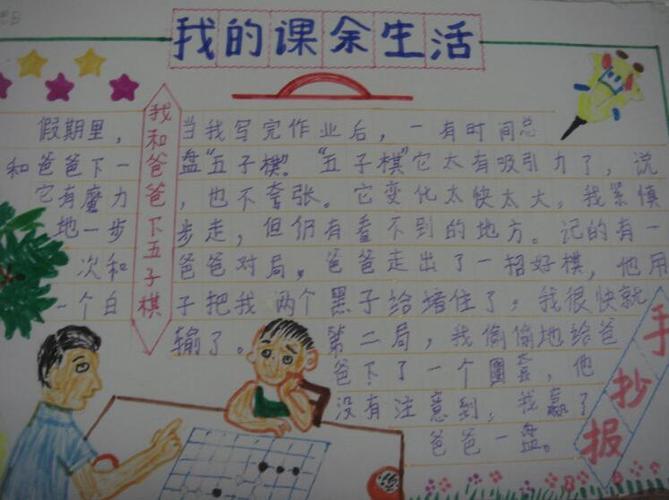 我的课余生活
我和爸爸下五子棋
假期里，当我写完作业后，一有时间总
和爸爸下一盘“五子棋”。“五子棋”它太有吸引力了，说
它有魔力，也不夸张。它变化太快太大，我谨慎
地一步步走，但仍有看不到的地方。记的有一
次和爸爸对局，爸爸走出了一招好棋，他用
一个白子把我两个黑子给堵住了，我很快就
输了。第二局，我偷偷地给爸
爸下了一个圈套，他
没有注意到，我赢了
爸爸一盘。
手抄报